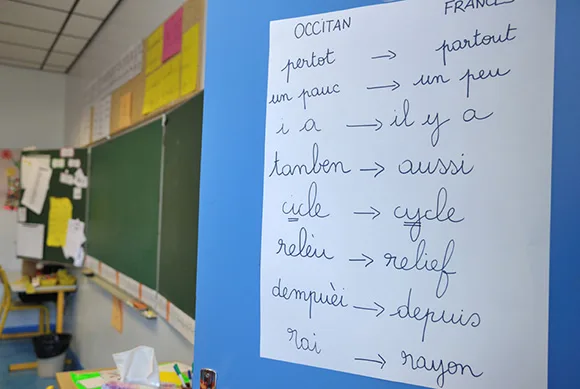 OCCITAN FRANCE
pertot → partout
un pauc → un peu
i a → il y a
tanben → aussi
cicle → cycle
relèu → relief
dempuèi → depuis
rai → rayon